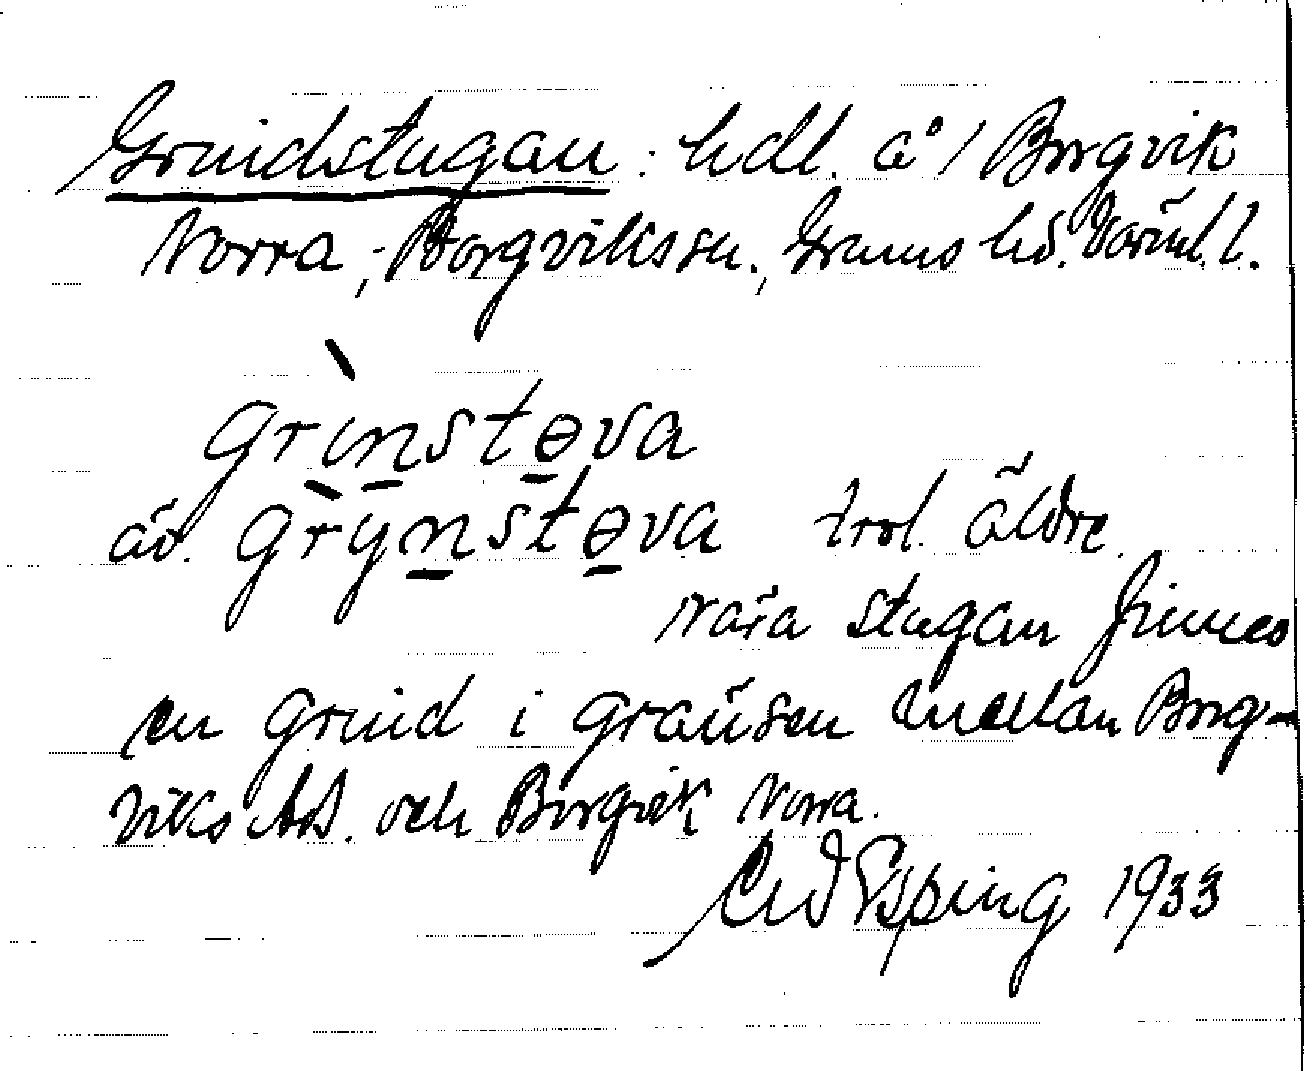 Grindstugan : hdl. å / Borgvik
Norra, Borgviks sn., Grums hd. Värml. l.
grìnstɵva
äv. grỳnstɵva trol. äldre.
Nära stugan finnes
en grind i gränsen mellan Borg-
viks hd. och Borgvik Norra.
Esping 1933